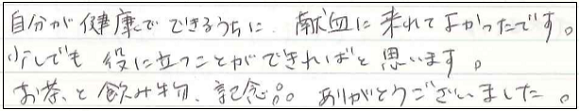 自分が健康でできるうちに、献血に来れてよかったです。
少しでも役に立つことができればと思います。
お茶と飲み物、記念品。ありがとうございました。